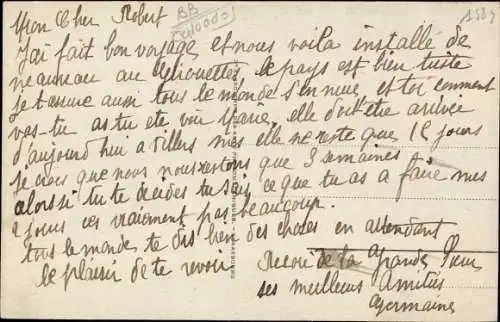 Mon Cher Robert
BB
J'ai fait bon voyage et nous voila installé de
neauneau au Gliouettes, le pays est bien tuiste
je t'assure aussi tous le monde s'ennuie, et toi comment
vas-tu as tu ete voir Marie, elle doit être arrivée
d'aujourd'hui a Villers mes elle ne reste que 12 jours
je crois que nous nous restons que 3 semaines
alors si tu te decides tu sais ce que tu as a faire mes
2 jours ces vraiment pas beaucoup.
tous le monde te dis bien des choses en attendant
le plaisir de te revoir
Recois de la Grande Soeur
ses meilleurs Amitiés
Germaine